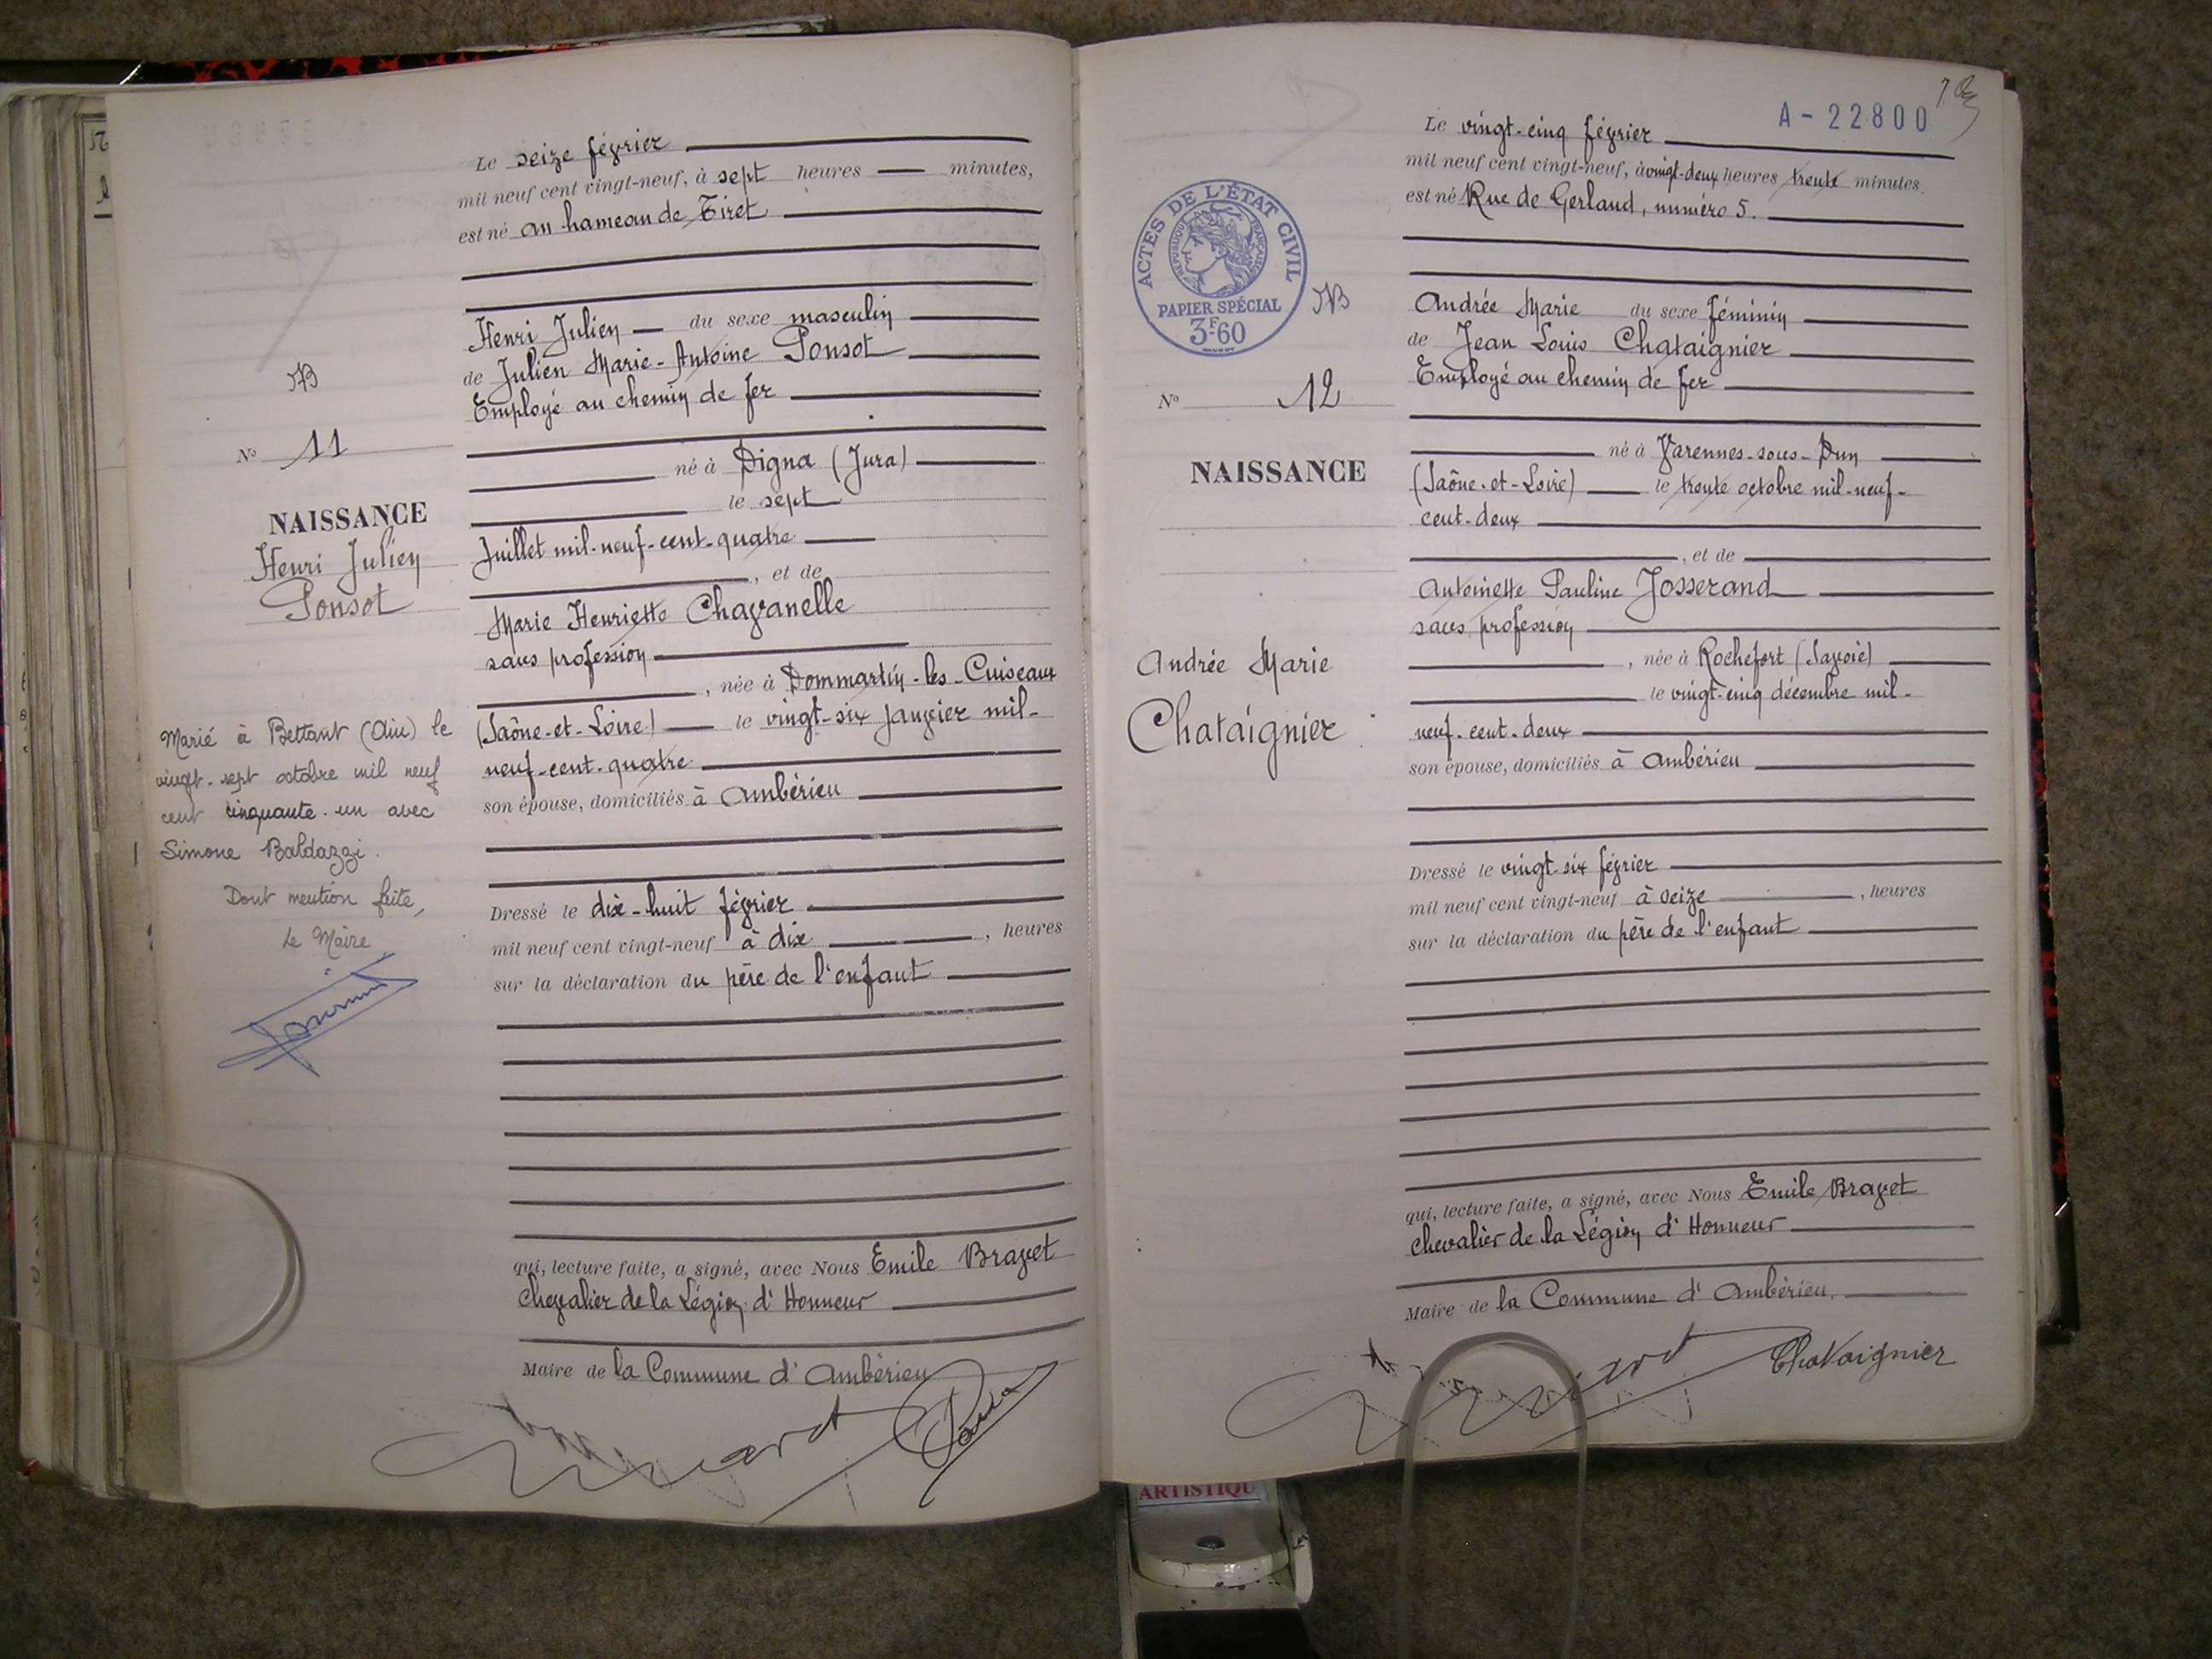 Le seize février
mil neuf cent vingt-neuf, à sept heures — minutes,
est né au hameau de Tiret
Henri Julien — du sexe masculin
de Julien Marie-Antoine Ponsot
Employé au chemin de fer
né à Digna (Jura)
le sept
Juillet mil-neuf-cent-quatre
, et de
Marie Henriette Chavanelle
sans profession
, née à Dommartin-les-Cuiseaux
(Saône-et-Loire) — le vingt-six janvier mil-
neuf-cent-quatre
son épouse, domiciliés à Ambérieu
Dressé le dix-huit février
mil neuf cent vingt-neuf à dix , heures
sur la déclaration du père de l'enfant
qui, lecture faite, a signé, avec Nous Emile Bravet
Chevalier de la Légion d'Honneur
Maire de la Commune d'Ambérieu
No 11
NAISSANCE
Henri Julien
Ponsot
Marié à Bettant (Ain) le
vingt-sept octobre mil neuf
cent cinquante-un avec
Simone Baldazzi.
Dont mention faite,
Le Maire
A-22800
Le vingt-cinq février
mil neuf cent vingt-neuf, à vingt-deux heures trente minutes.
est né Rue de Gerland, numéro 5.
Andrée Marie du sexe féminin
de Jean Louis Chataignier
Employé au chemin de fer
né à Varennes-sous-Dun
(Saône-et-Loire) — le trente octobre mil-neuf-
cent-deux
, et de
Antoinette Pauline Josserand
sans profession
, née à Rochefort (Savoie)
le vingt-cinq décembre mil-
neuf-cent-deux
son épouse, domiciliés à Ambérieu
Dressé le vingt-six février
mil neuf cent vingt-neuf à seize , heures
sur la déclaration du père de l'enfant
qui, lecture faite, a signé, avec Nous Emile Bravet
Chevalier de la Légion d'Honneur
Maire de la Commune d'Ambérieu.
Chataignier
ACTES DE L'ÉTAT CIVIL
RÉPUBLIQUE FRANÇAISE
PAPIER SPÉCIAL
3F.60
No 12
NAISSANCE
Andrée Marie
Chataignier
ARTISTIQU